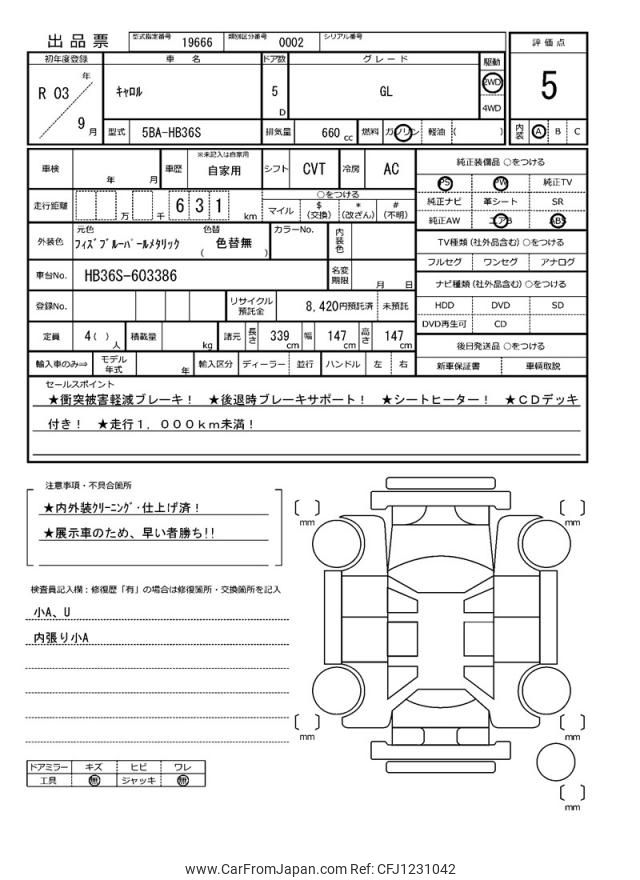 出品票 型式指定番号 19666 類別区分番号 0002 シリアル番号
評価点
5
内装 A B C
初年度登録 車名 ドア数 グレード 駆動
R 03 年 9 月
キャロル 5 D GL 2WD 4WD
型式 5BA-HB36S 排気量 660 cc 燃料 ガソリン 軽油 ( )
車検 年 月 車歴 ※未記入は自家用 自家用 シフト CVT 冷房 AC
走行距離 万 千 6 3 1 km
○をつける
マイル $ (交換) * (改ざん) # (不明)
外装色 元色 フィズブルーパールメタリック 色替 ( 色替無 ) カラーNo. 内装色
車台No. HB36S-603386 名変期限 月 日
登録No. リサイクル預託金 8,420円預託済 未預託
定員 4 ( ) 人 積載量 kg 諸元 長さ 339 cm 幅 147 cm 高さ 147 cm
輸入車のみ⇒ モデル年式 年 輸入区分 ディーラー 並行 ハンドル 左 右
純正装備品 ○をつける
PS PW 純正TV
純正ナビ 革シート SR
純正AW エアB ABS
TV種類 (社外品含む) ○をつける
フルセグ ワンセグ アナログ
ナビ種類 (社外品含む) ○をつける
HDD DVD SD
DVD再生可 CD
後日発送品 ○をつける
新車保証書 車輌取説
セールスポイント
★衝突被害軽減ブレーキ! ★後退時ブレーキサポート! ★シートヒーター! ★CDデッキ
付き! ★走行1,000km未満!
注意事項・不具合箇所
★内外装クリーニング・仕上げ済!
★展示車のため、早い者勝ち!!
検査員記入欄:修復歴「有」の場合は修復箇所・交換箇所を記入
小A、U
内張り小A
ドアミラー キズ ヒビ ワレ
工具 無 ジャッキ 無
mm
mm
mm
mm
mm
www.CarFromJapan.com Ref: CFJ1231042